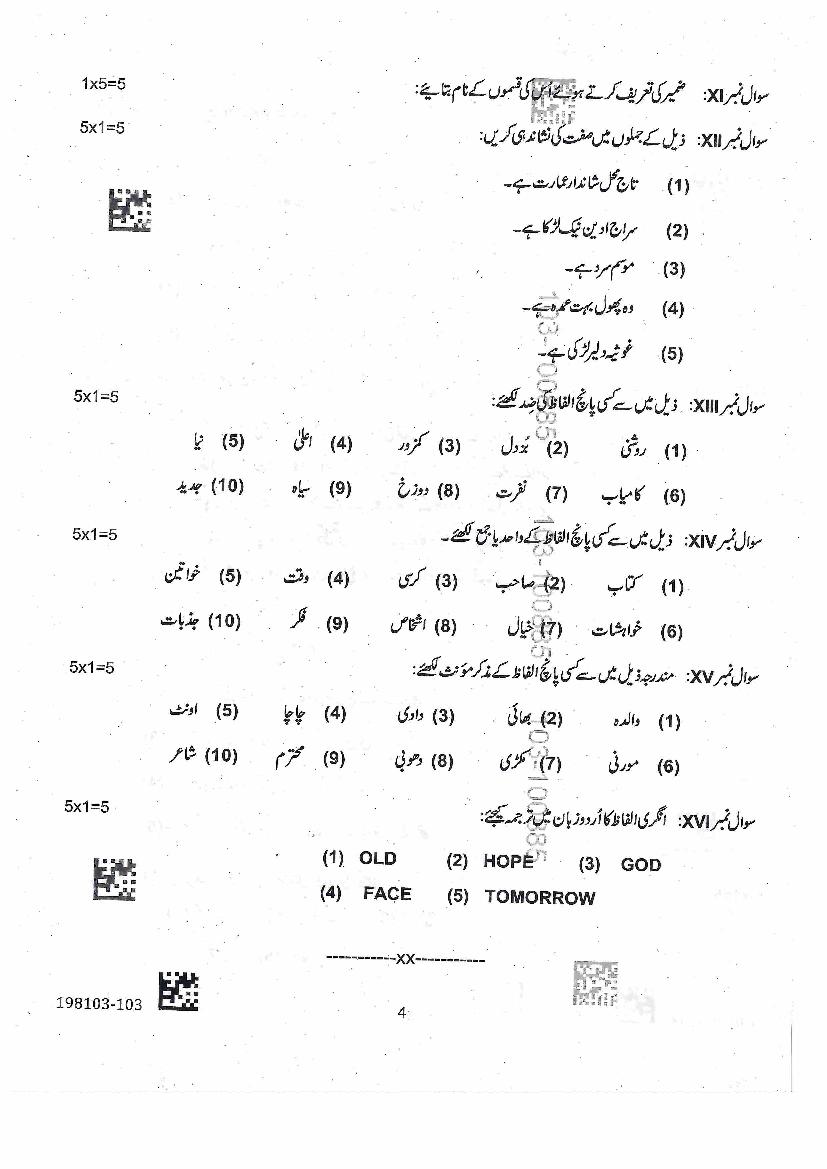 سوال نمبر XI: ضمیر کی تعریف کرتے ہوئے اُس کی قسموں کے نام بتایئے: 1x5=5
سوال نمبر XII: ذیل کے جملوں میں صفت کی نشاندہی کریں: 5x1=5
(1) تاج محل شاندار عمارت ہے۔
(2) سراج ادین نیک لڑکا ہے۔
(3) موسم سرد ہے۔
(4) وہ پھول بہت عمدہ ہے۔
(5) غوثیہ دلیر لڑکی ہے۔
سوال نمبر XIII: ذیل میں سے کسی پانچ الفاظ کی ضد لکھئے: 5x1=5
(1) روشنی (2) بُزدل (3) کمزور (4) اعلیٰ (5) نیا
(6) کامیاب (7) نفرت (8) دوزخ (9) سیاہ (10) جدید
سوال نمبر XIV: ذیل میں سے کسی پانچ الفاظ کے واحد یا جمع لکھئے۔ 5x1=5
(1) کتاب (2) صاحب (3) کرسی (4) وقت (5) خواتین
(6) خواہشات (7) خیال (8) اشخاص (9) فکر (10) جذبات
سوال نمبر XV: مندرجہ ذیل میں سے کسی پانچ الفاظ کے مذکر مؤنث لکھئے: 5x1=5
(1) والدہ (2) بھائی (3) دادی (4) چاچا (5) اونٹ
(6) مورنی (7) مکڑی (8) دھوبی (9) محترم (10) شاعر
سوال نمبر XVI: انگریزی الفاظ کا اُردو زبان میں ترجمہ کیجئے: 5x1=5
(1) OLD (2) HOPE (3) GOD
(4) FACE (5) TOMORROW
------------XX------------
198103-103
4
103-100885
103-100885
103-100885